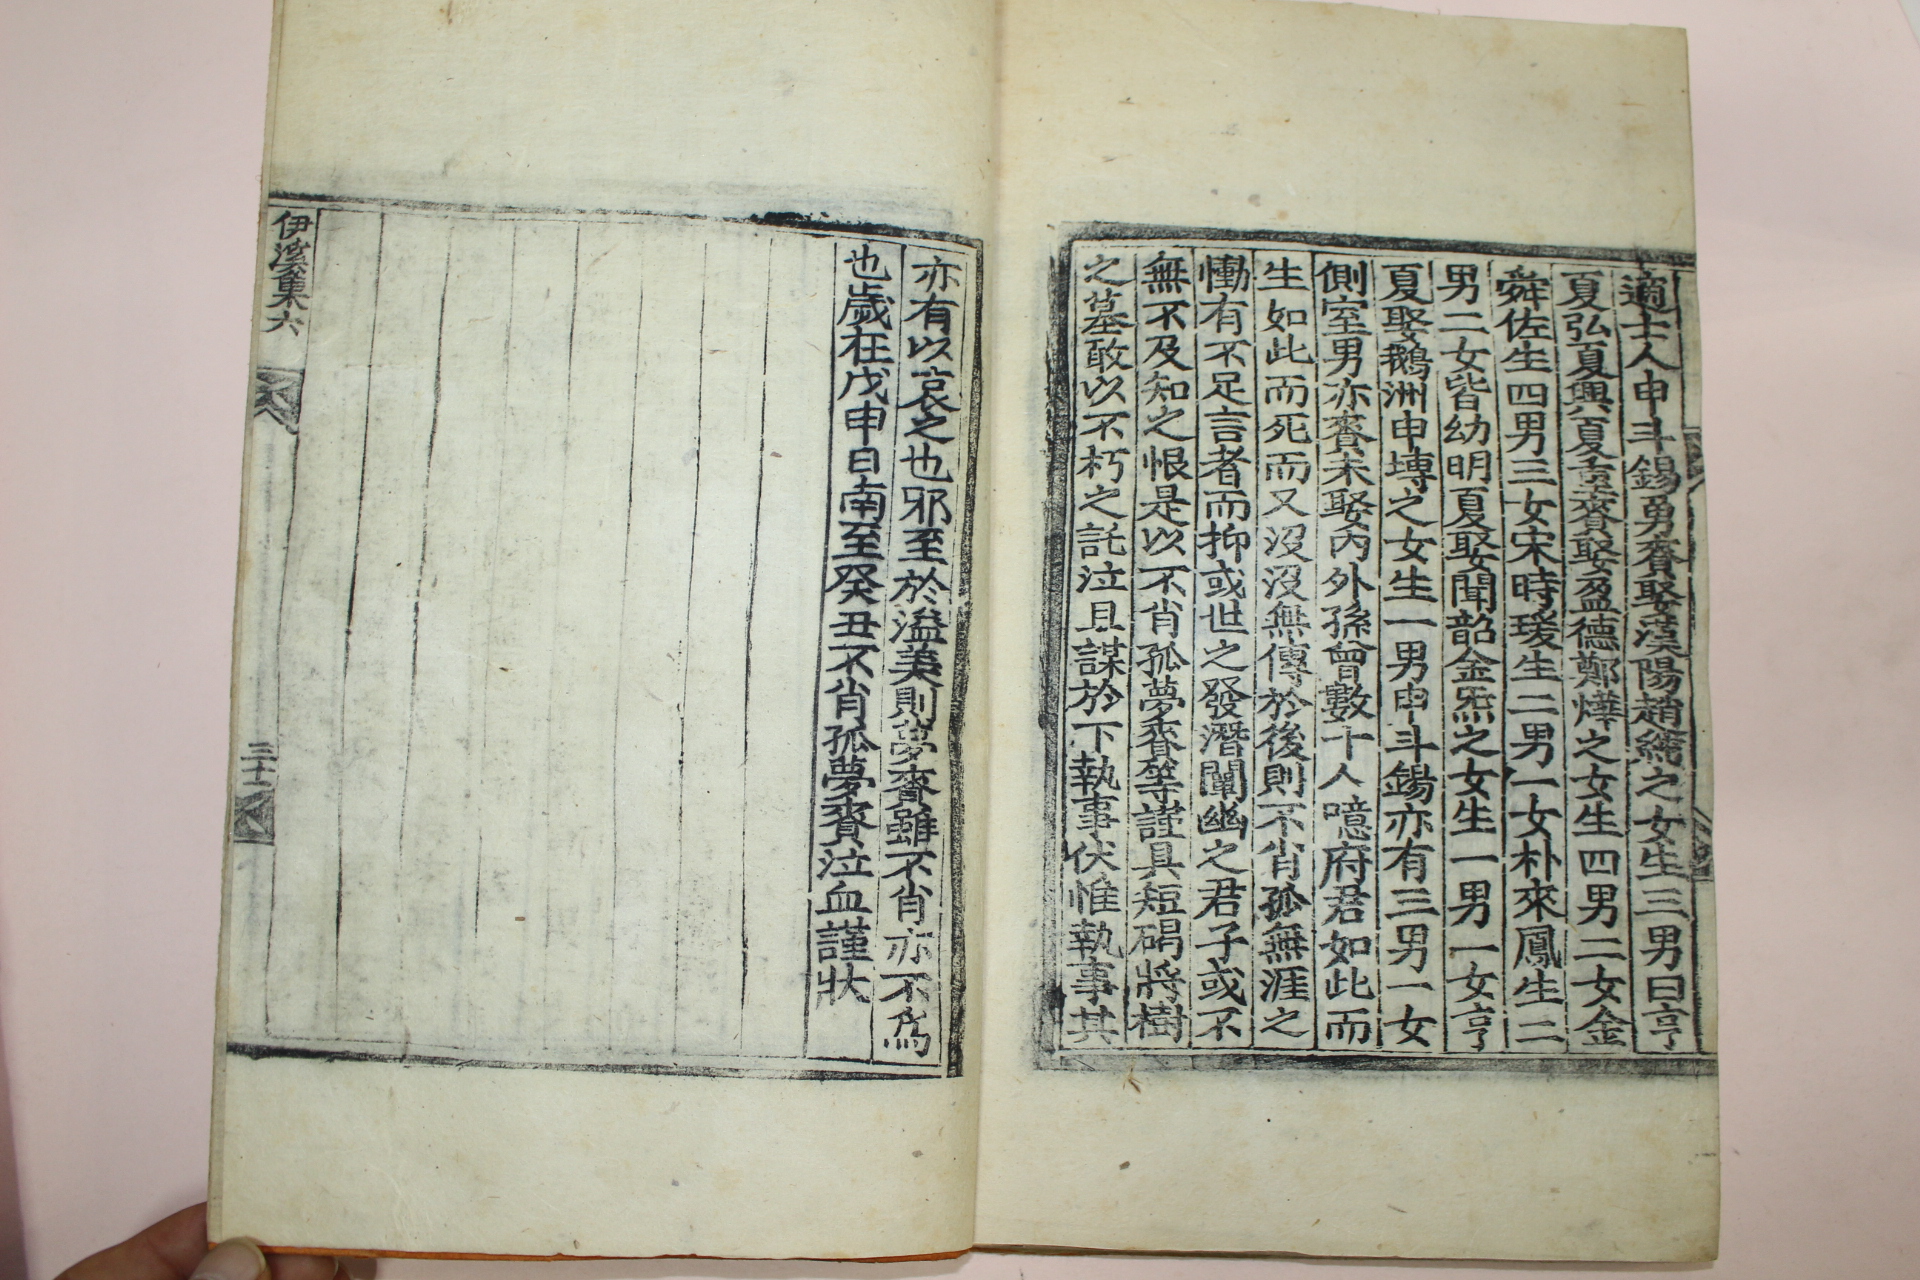 適士人申斗錫勇賚娶漢陽趙繡之女生三男曰亨
夏弘夏興夏壴賚娶盈德鄭燁之女生四男二女金
舜佐生四男三女宋時瑗生二男一女朴來鳳生二
男二女皆幼明夏娶聞韶金炁之女生一男一女亨
夏娶鵝洲申塼之女生一男申斗錫亦有三男一女
側室男亦賚未娶內外孫曾數十人噫府君如此而
生如此而死而又沒沒無傳於後則不肖孤無涯之
慟有不足言者而抑或世之發潛闡幽之君子或不
無不及知之恨是以不肖孤夢賚等謹具短碣將樹
之墓敢以不朽之託泣且謀於下執事伏惟執事其
亦有以哀之也邪至於溢美則夢賚雖不肖亦不爲
也歲在戊申日南至癸丑不肖孤夢賚泣血謹狀
伊溪集六
三十二